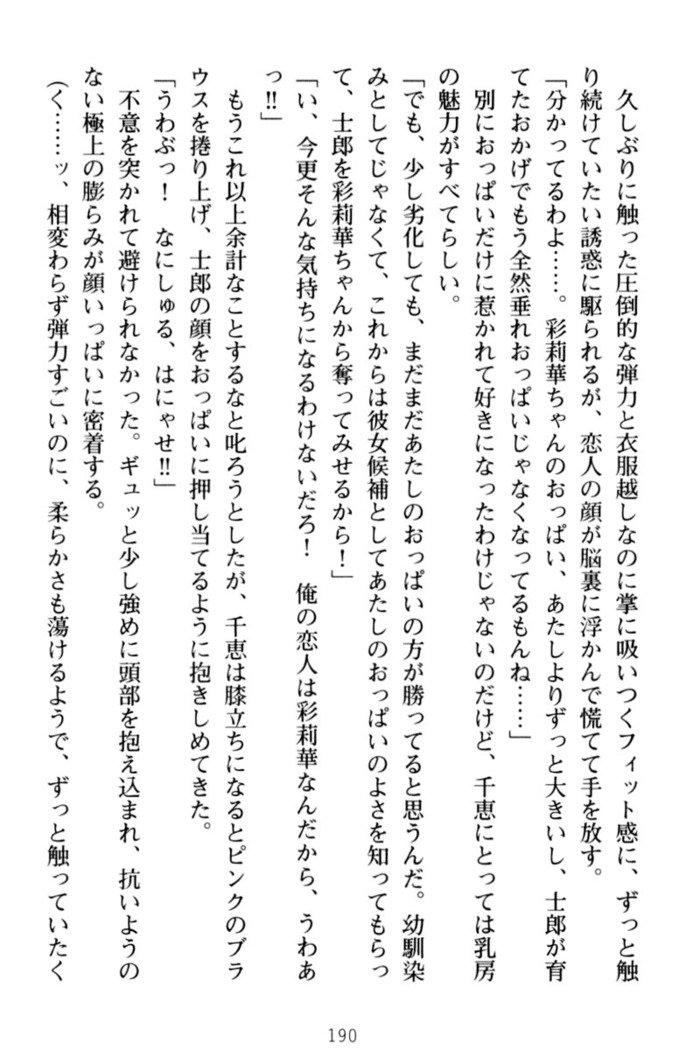 久しぶりに触った圧倒的な弾力と衣服越しなのに掌に吸いつくフィット感に、ずっと触
り続けていたい誘惑に駆られるが、恋人の顔が脳裏に浮かんで慌てて手を放す。
「分かってるわよ……。彩莉華ちゃんのおっぱい、あたしよりずっと大きいし、士郎が育
てたおかげでもう全然垂れおっぱいじゃなくなってるもんね……」
　別におっぱいだけに惹かれて好きになったわけじゃないのだけど、千恵にとっては乳房
の魅力がすべてらしい。
「でも、少し劣化しても、まだまだあたしのおっぱいの方が勝ってると思うんだ。幼馴染
みとしてじゃなくて、これからは彼女候補としてあたしのおっぱいのよさを知ってもらっ
て、士郎を彩莉華ちゃんから奪ってみせるから！」
「い、今更そんな気持ちになるわけないだろ！　俺の恋人は彩莉華なんだから、うわぁ
っ‼」
　もうこれ以上余計なことするなと叱ろうとしたが、千恵は膝立ちになるとピンクのブラ
ウスを捲り上げ、士郎の顔をおっぱいに押し当てるように抱きしめてきた。
「うわぶっ！　なにしゅる、はにゃせ‼」
　不意を突かれて避けられなかった。ギュッと少し強めに頭部を抱え込まれ、抗いようの
ない極上の膨らみが顔いっぱいに密着する。
（く……ッ、相変わらず弾力すごいのに、柔らかさも蕩けるようで、ずっと触っていたく
190